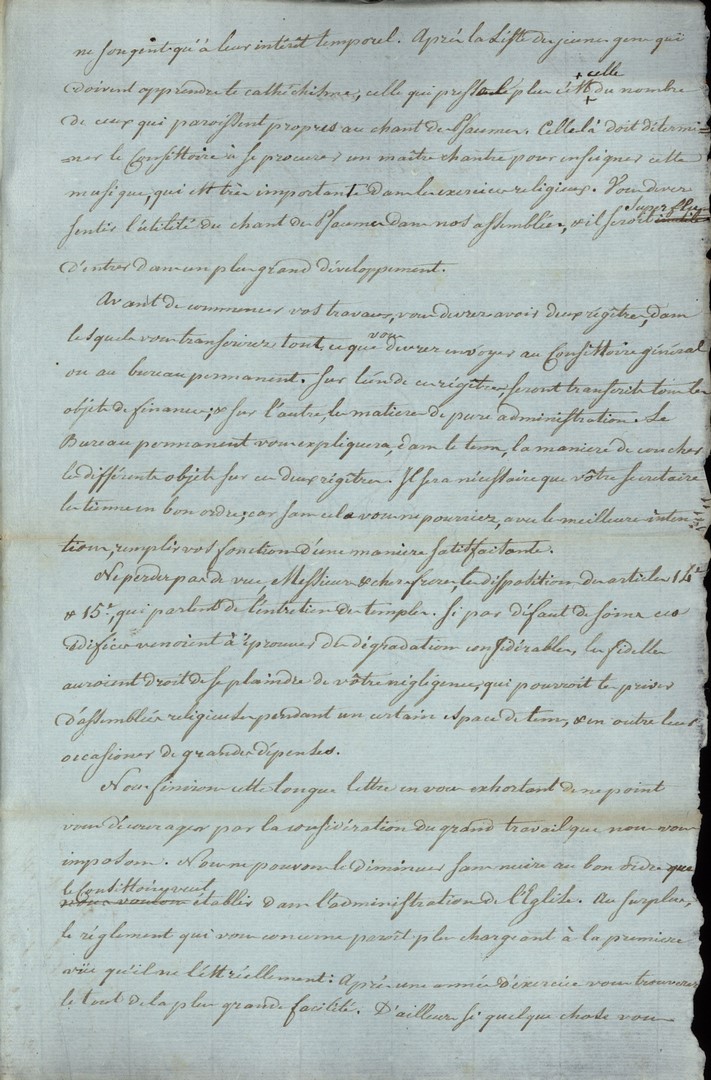 ne songent qu'à leur intérêt temporel. Après la Liste des jeunes gens qui
doivent apprendre le cathéchisme, celle qui presse le plus est celle du nombre
de ceux qui paroissent propres au chant des Psaumes. Celle là doit détermi-
=ner le Consistoire à se procurer un maître chantre pour enseigner cette
musique, qui est très importante dans les exercices religieux. Vous devez
sentir l'utilité du chant des Psaumes dans nos assemblées, & il seroit inutile superflu
d'entrer dans un plus grand développement.
Avant de commencer vos travaux, vous devrez avoir deux régîtres, dans
lesquels vous transcrirez tout ce que vous devrez envoyer au Consistoire général
ou au bureau permanent. Sur l'un de ces régîtres, seront transcrits tous les
objets de finances; & sur l'autre, les matieres de pure administration. Le
Bureau permanent vous expliquera, dans le tems, la maniere de coucher
les différents objets sur ces deux régîtres. Il sera nécessaire que vôtre secretaire
les tienne en bon ordre; car sans cela vous ne pourriez, avec les meilleures inten-
tions, remplir vos fonctions d'une maniere satisfaisante.
Ne perdez pas de vue, Messieurs & chers freres, les dispositions des articles 14.e
& 15.e, qui parlent de l'entretien des temples. Si par défaut de soins ces
édifices venoient à éprouver des dégradations considérables, les fidelles
auroient droit de se plaindre de vôtre négligence, qui pourroit les priver
d'assemblées religieuses pendant un certain espace de tems, & en outre leur
occasioner de grandes dépenses.
Nous finirons cette longue lettre en vous exhortant de ne point
vous décourager par la considération du grand travail que nous vous
imposons. Nous ne pouvons le diminuer sans nuire au bon ordre que
le Consistoire veut
nous voulons établir dans l'administration de l'Eglise. Au surplus,
le réglement qui vous concerne paroît plus chargeant à la premiere
vüe qu'il ne l'est réellement: Après une année d'exercice vous trouverez
le tout de la plus grande facilité. D'ailleurs si quelque chose vous